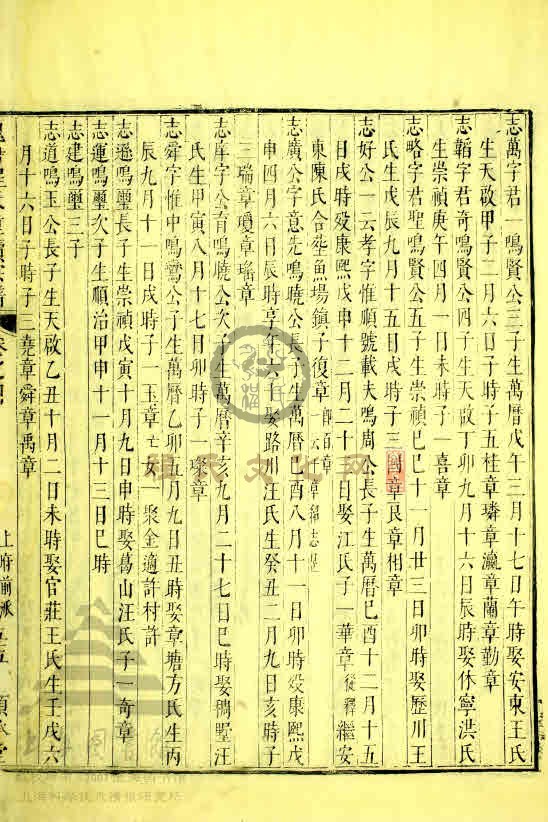 志萬字君一鳴賢公三子生萬曆戊午三月十七日午時娶安東王氏
生天啟甲子二月六日子時子五桂章璘章瀛章蘭章勤章
志韜字君奇鳴賢公四子生天啟丁卯九月十六日辰時娶休寧洪氏
生崇禎庚午四月一日未時子一喜章
志略字君聖鳴賢公五子生崇禎己巳十一月廿三日卯時娶歷川王
氏生戊辰九月十五日戌時子三國章良章相章
志好公一云孝字惟順號載夫鳴周公長子生萬曆己酉十二月十五
日戌時歿康熙戊申十二月二十日娶江氏子一華章從釋繼安
東陳氏合塟魚場鎮子復章
志廣公字意先鳴曉公長子生萬曆己酉八月十一日卯時歿康熙戊
申四月六日辰時享年六十娶路川汪氏生癸丑二月九日亥時子
三瑞章瓊章瑤章
志庠字公育鳴曉公次子生萬曆辛亥九月二十七日巳時娶稠墅汪
氏生甲寅八月十七日卯時子一璨章
志舜字惟中鳴鸞公子生萬曆乙卯五月九日丑時娶章塘方氏生丙
辰九月十一日戌時子一玉章亡女一聚金適許村許
志遜鳴璽長子生崇禎戊寅十月九日申時娶葛山汪氏子一奇章
志運鳴璽次子生順治甲申十一月十三日巳時
志建鳴璽三子
志道鳴玉公長子生天啟乙丑十月二日未時娶官莊王氏生壬戌六
月十六日子時子三堯章舜章禹章